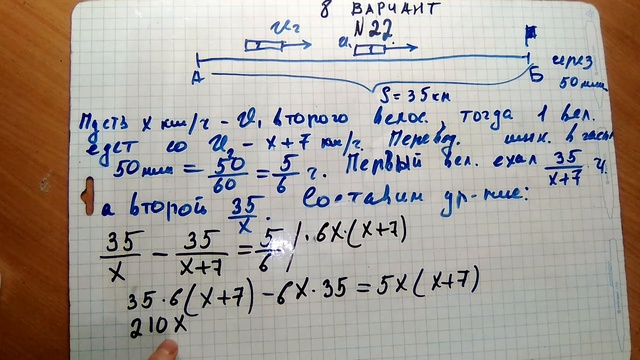 8 ВАРИАНТ
N 22.
А
Б
через
50 мин
S = 35 км
Пусть x км/ч - V, второго велос., тогда 1 вел.
едет со V₂ - x+7 км/ч. Перевод. мин. в часы
50 мин = 50/60 = 5/6 ч. Первый вел. ехал 35/(x+7) ч.
а второй 35/x. Составим ур-ние:
35/x - 35/(x+7) = 5/6 / · 6x·(x+7)
35·6(x+7) - 6x·35 = 5x(x+7)
210x